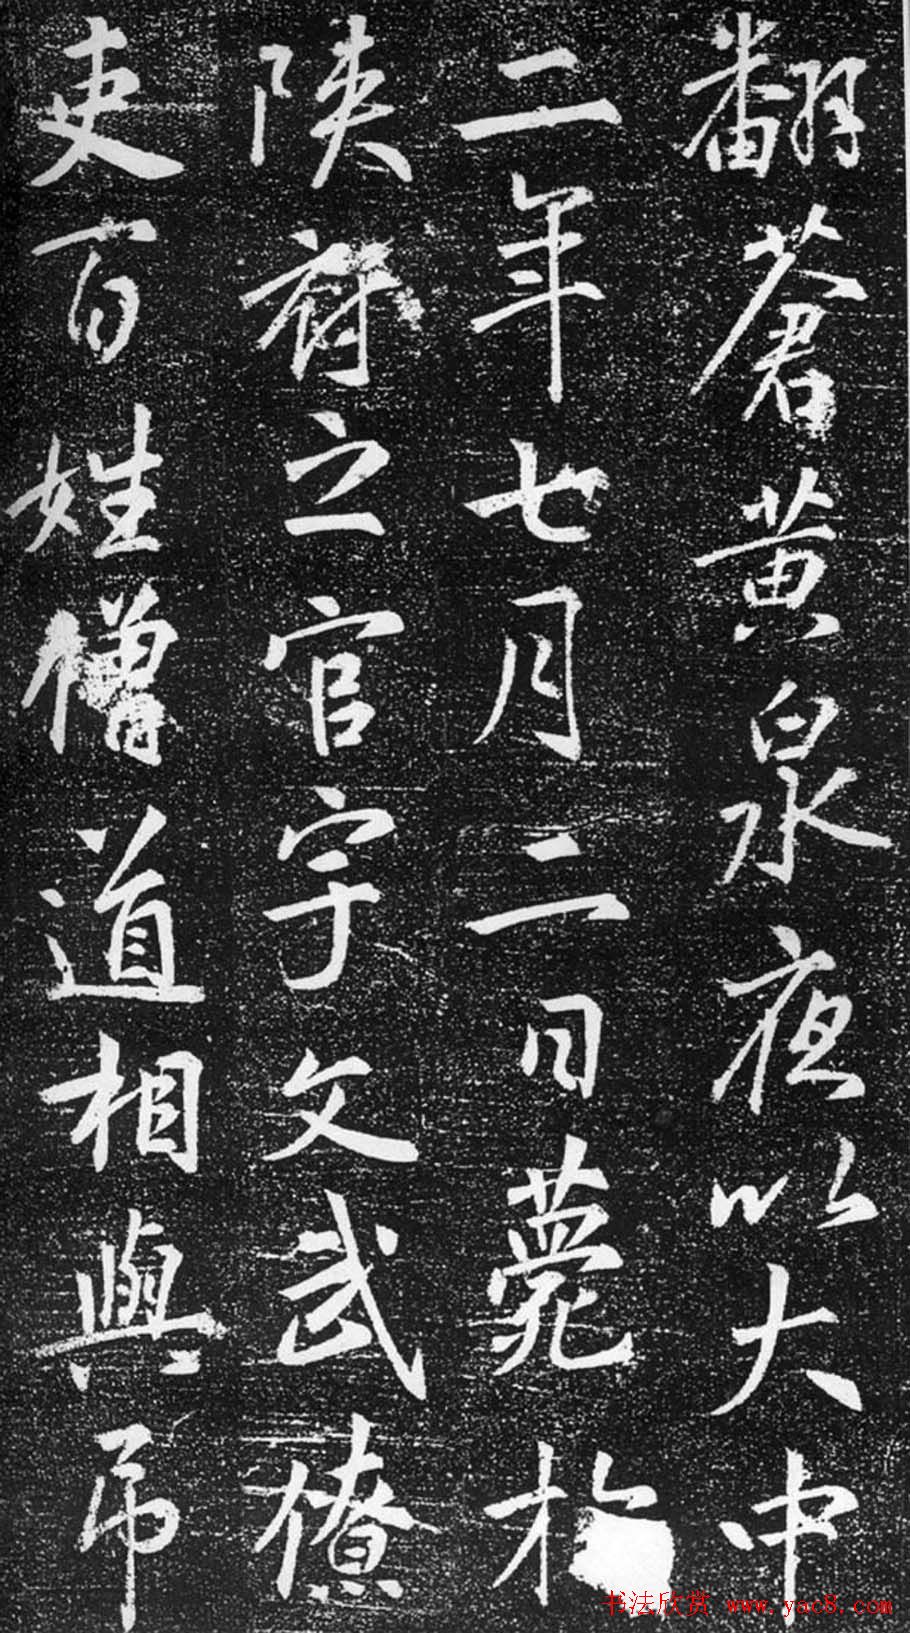 翻蒼黄泉夜以大中
二年七月二日薨於
陝府之官字文武僚
吏百姓僧道相與吊
书法欣赏 www.yac8.com